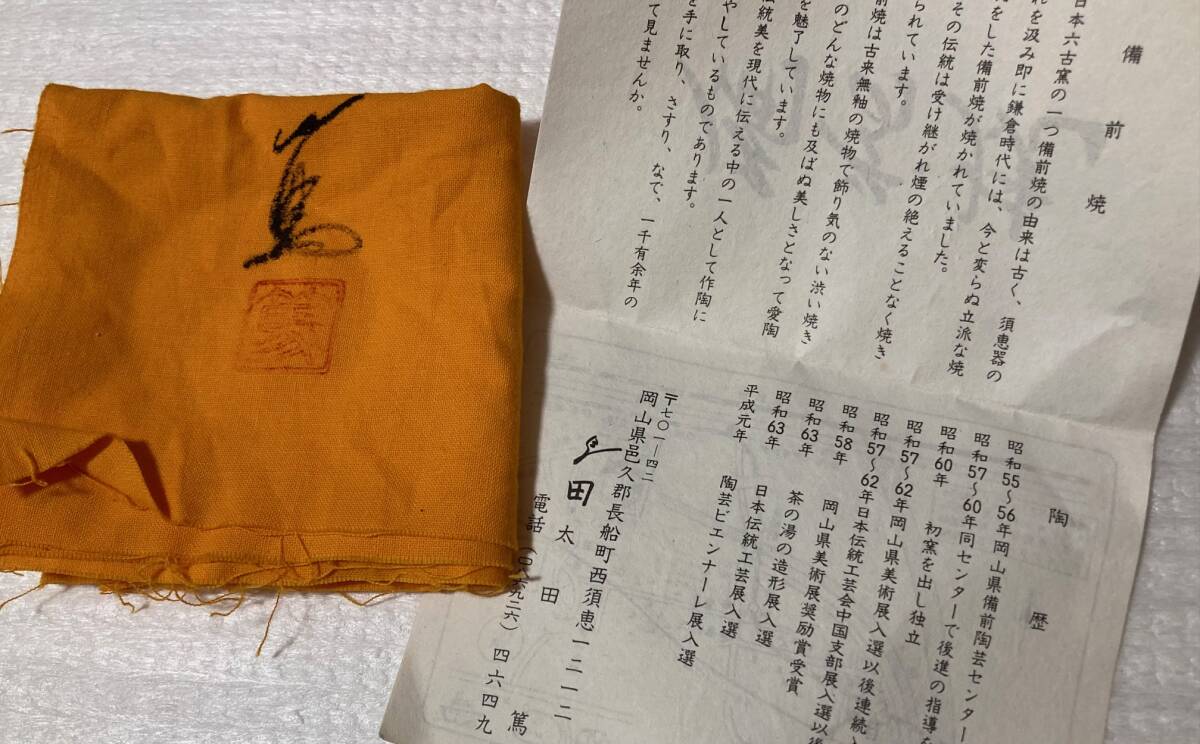 備前焼
日本六古窯の一つ備前焼の由来は古く、須恵器の
れを汲み即に鎌倉時代には、今と変らぬ立派な焼
をした備前焼が焼かれていました。
その伝統は受け継がれ煙の絶えることなく焼き
られています。
前焼は古来無釉の焼物で飾り気のない渋い焼き
のどんな焼物にも及ばぬ美しさとなって愛陶
を魅了しています。
伝統美を現代に伝える中の一人として作陶に
やしているものであります。
を手に取り、さすり、なで、一千有余年の
て見ませんか。
陶歴
昭和55〜56年岡山県備前陶芸センター
昭和57〜60年同センターで後進の指導を
昭和60年 初窯を出し独立
昭和57〜62年岡山県美術展入選以後連続入
昭和57〜62年日本伝統工芸会中国支部展入選以後
昭和58年 岡山県美術展奨励賞受賞
昭和63年 茶の湯の造形展入選
昭和63年 日本伝統工芸展入選
平成元年 陶芸ビエンナーレ展入選
〒七〇一-四二
岡山県邑久郡長船町西須恵一二一二
太田篤
電話(〇八六九二六)四六四九